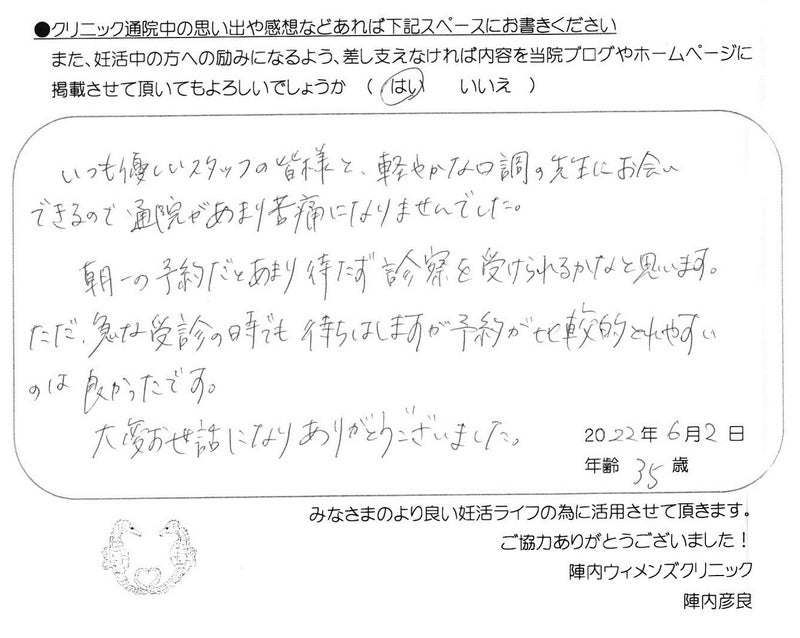 ●クリニック通院中の思い出や感想などあれば下記スペースにお書きください
また、妊活中の方への励みになるよう、差し支えなければ内容を当院ブログやホームページに
掲載させて頂いてもよろしいでしょうか （ はい いいえ ）
いつも優しいスタッフの皆様と、軽やかな口調の先生にお会い
できるので通院があまり苦痛になりませんでした。
朝一の予約だとあまり待たず診察を受けられるかなと思います。
ただ、急な受診の時でも待ちはしますが予約が比較的とれやすい
のは良かったです。
大変お世話になりありがとうございました。
2022年 6月2日
年齢 35歳
みなさまのより良い妊活ライフの為に活用させて頂きます。
ご協力ありがとうございました！
陣内ウィメンズクリニック
陣内彦良